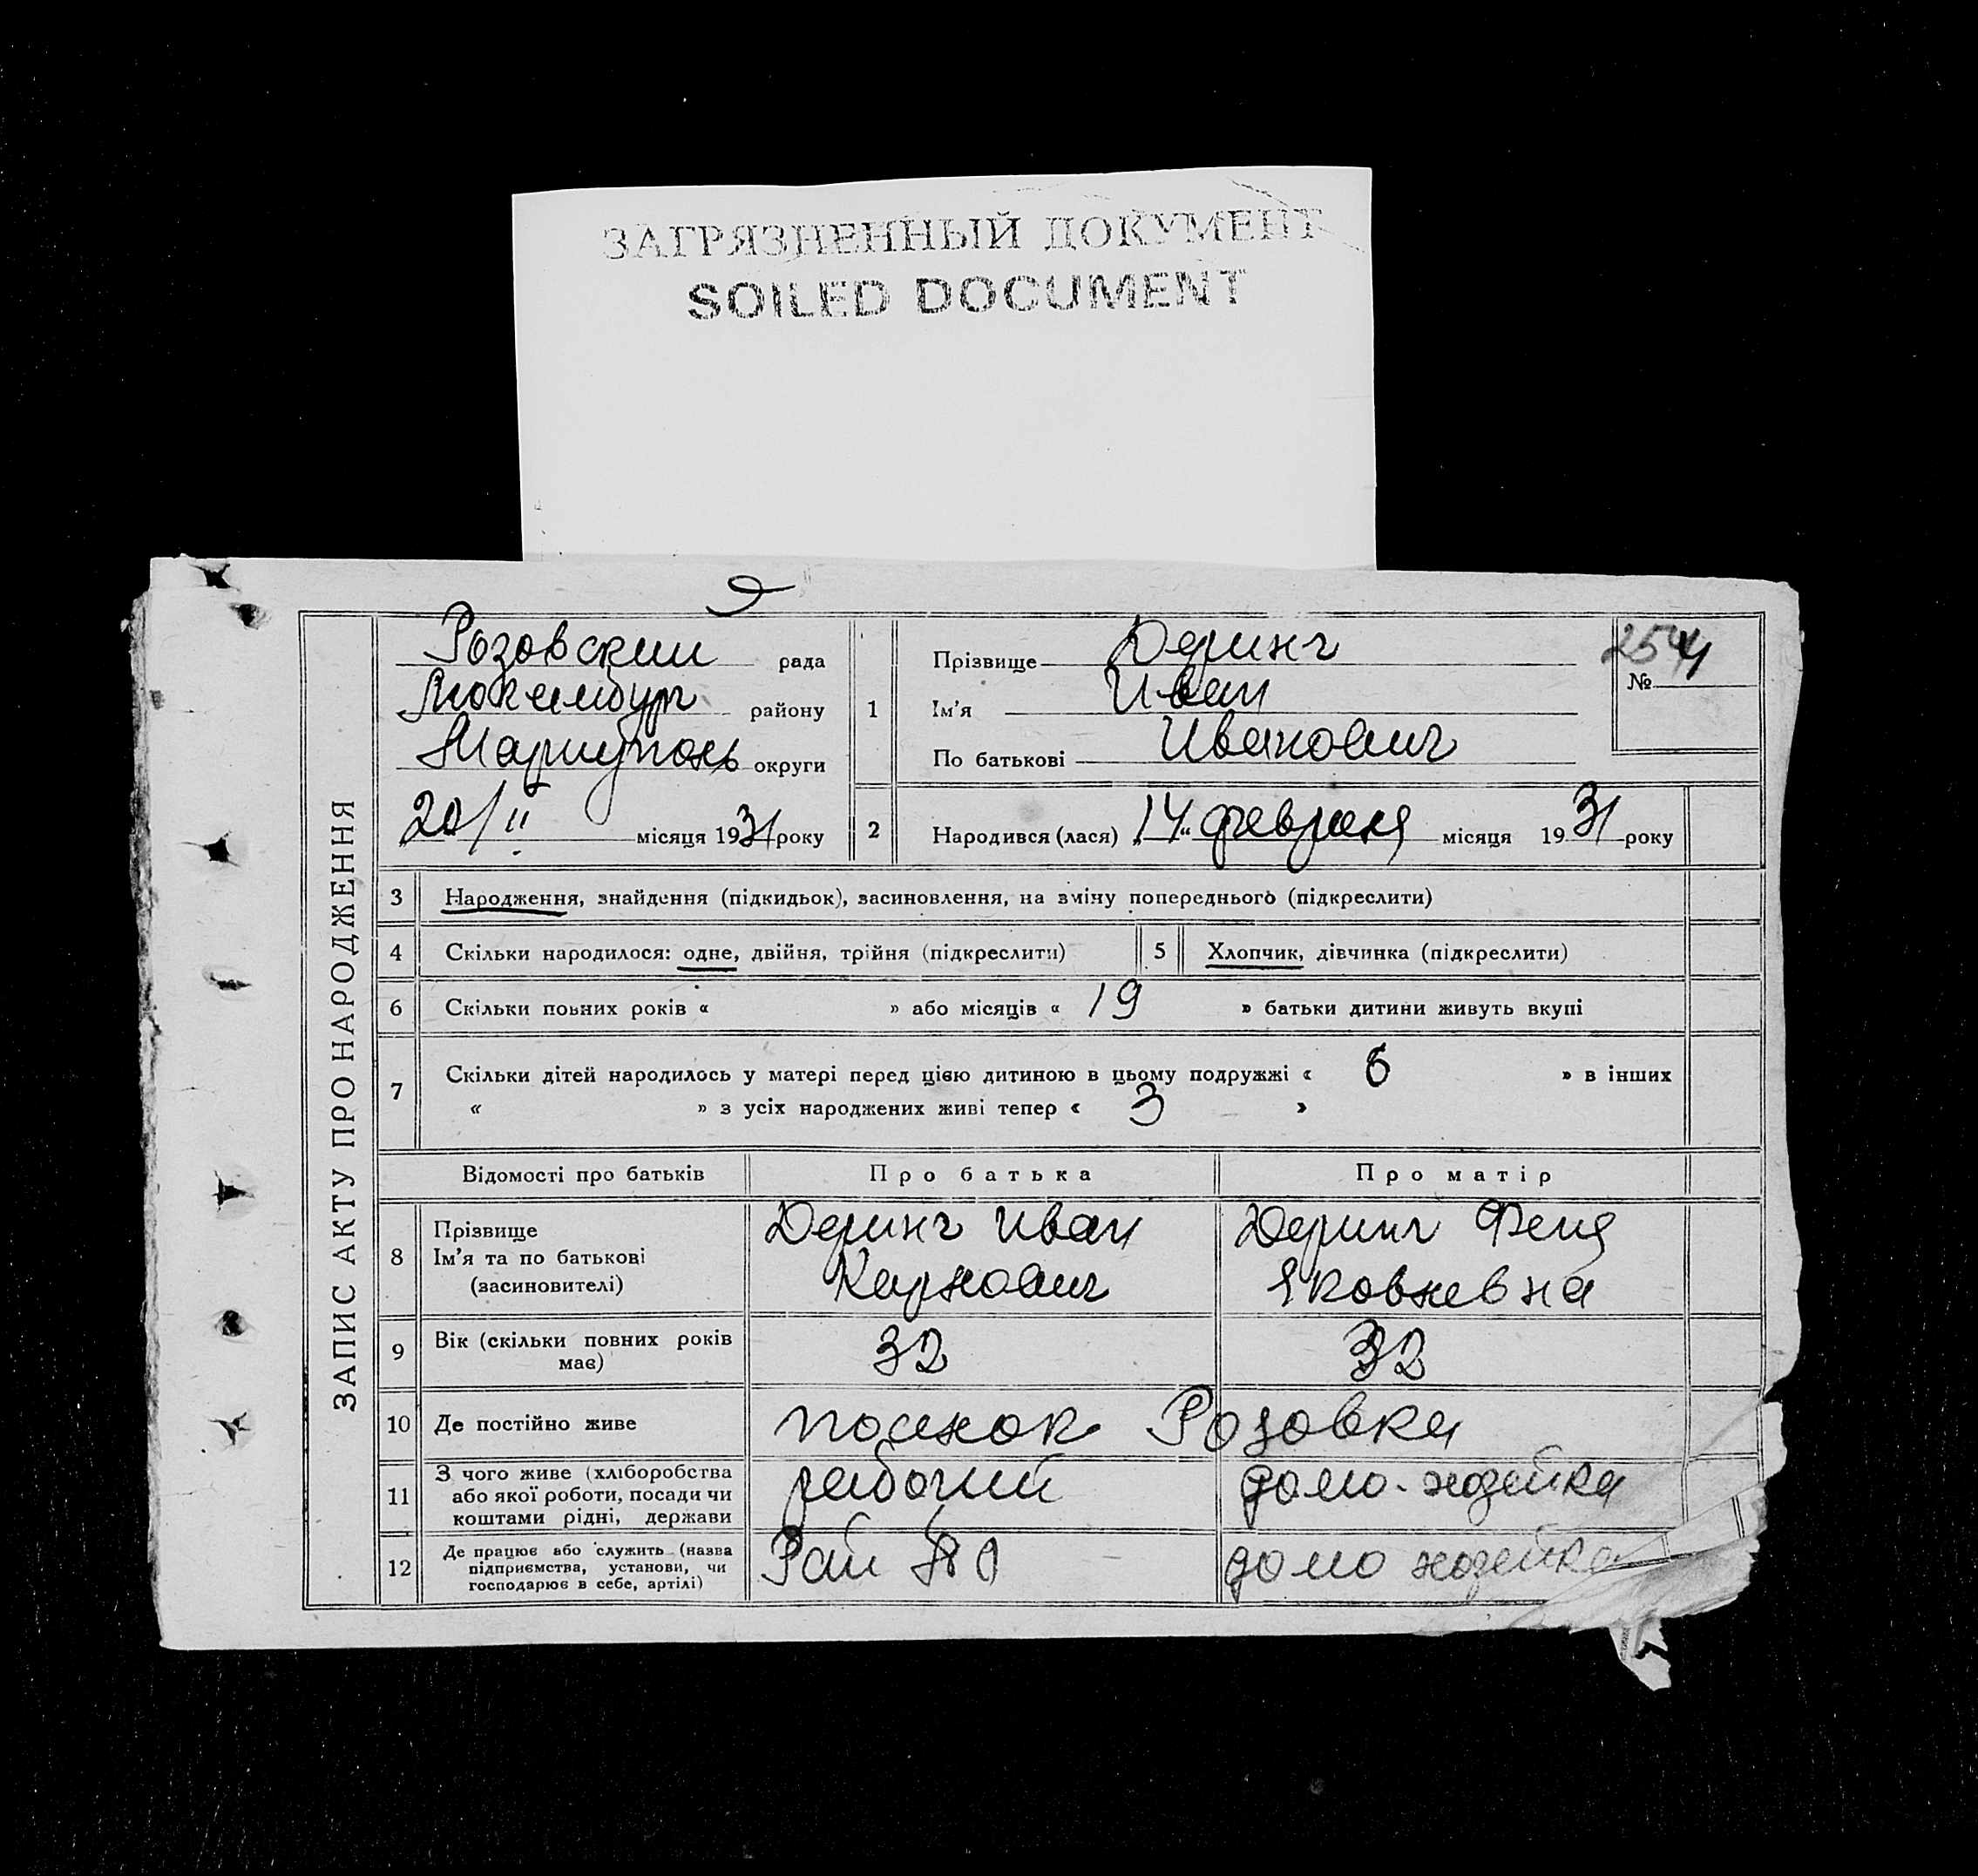 ЗАГРЯЗНЕННЫЙ ДОКУМЕНТ
SOILED DOCUMENT
ЗАПИС АКТУ ПРО НАРОДЖЕННЯ
Розовский рада
району
Мариуполь округи
20/II місяця 1931 року
1
Прізвище Деринг
Ім'я Иван
По батькові Иванович
№
2 Народився (лася) „14“ февраля місяця 1931 року
3 Народження, знайдення (підкидьок), засиновлення, на зміну попереднього (підкреслити)
4 Скільки народилося: одне, двійня, трійня (підкреслити) 5 Хлопчик, дівчинка (підкреслити)
6 Скільки повних років « » або місяців « 19 » батьки дитини живуть вкупі
7 Скільки дітей народилось у матері перед цією дитиною в цьому подружжі « 6 » в інших
« » з усіх народжених живі тепер « 3 »
Відомості про батьків Про батька Про матір
8 Прізвище
Ім'я та по батькові
(засиновителі)
Деринг Иван
Карлович
Деринг Феня
Яковлевна
9 Вік (скільки повних років
має)
32 32
10 Де постійно живе Розовка
11 З чого живе (хліборобства
або якої роботи, посади чи
коштами рідні, держави
рабочий домо-хозейка
12 Де працює або служить (назва
підприємства, установи, чи
господарює в себе, артілі)
Рай домо хозейка